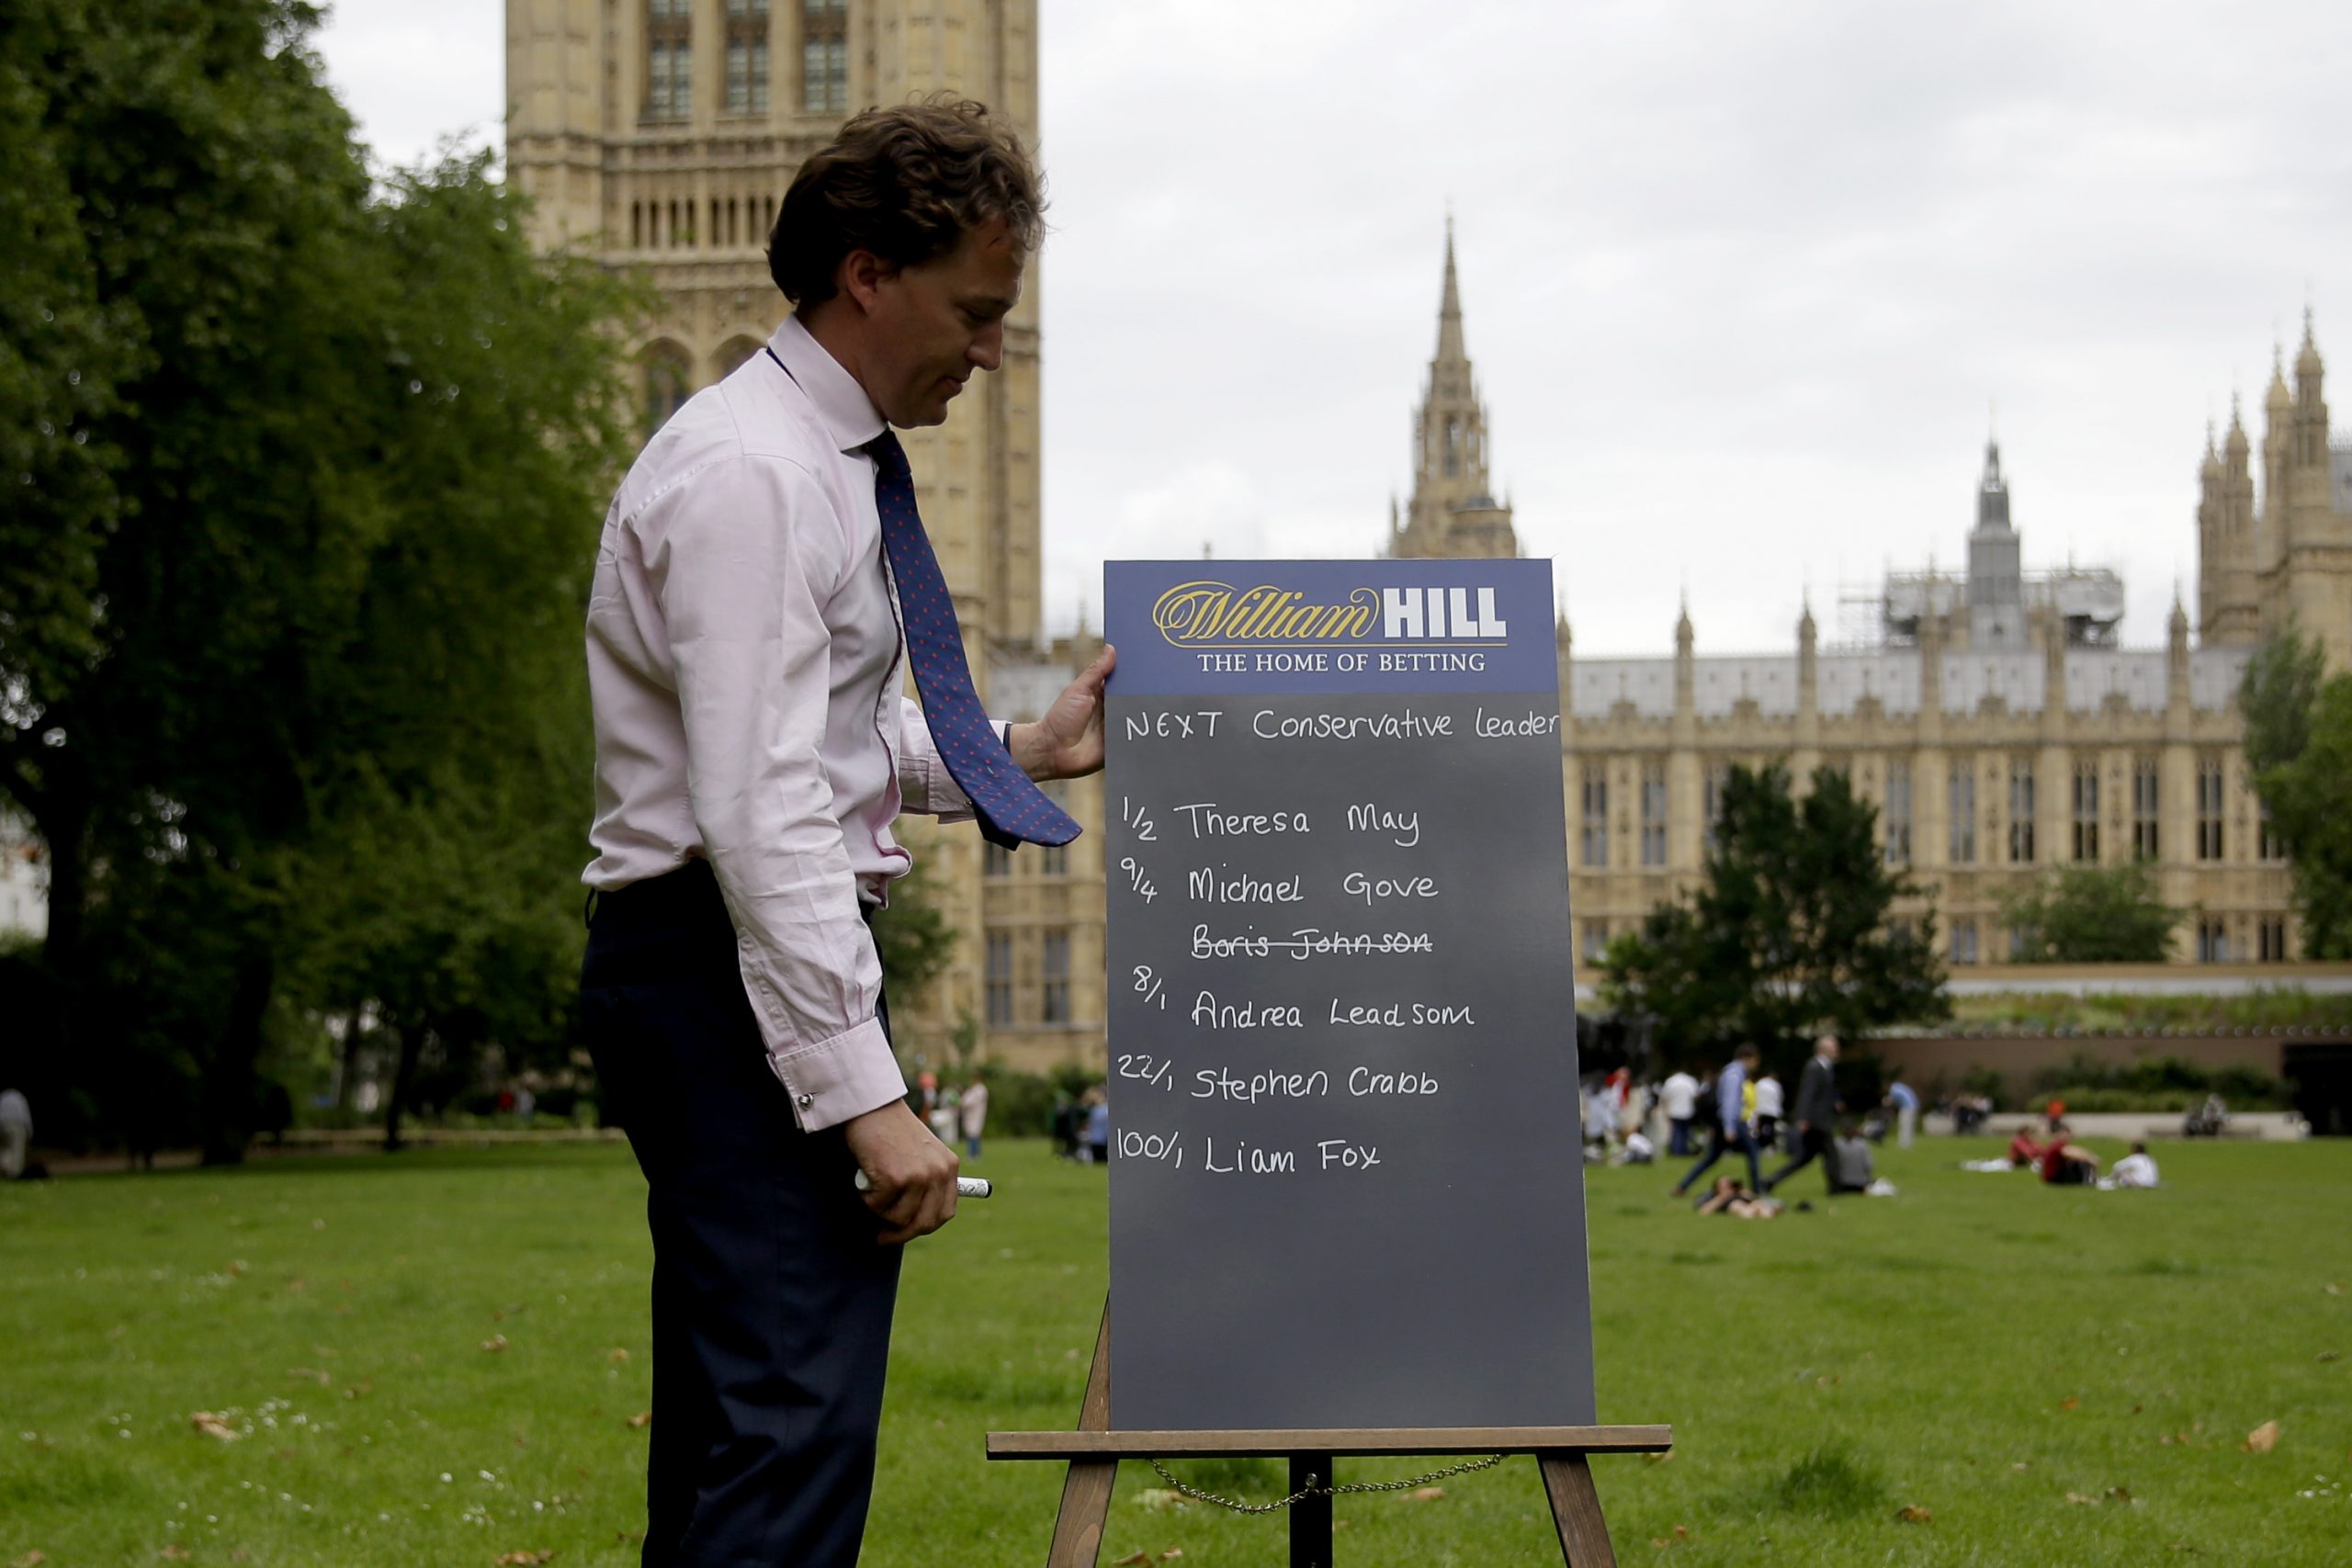 William HILL
THE HOME OF BETTING
NEXT Conservative Leader
1/2 Theresa May
9/4 Michael Gove
Boris Johnson
8/1 Andrea Leadsom
22/1 Stephen Crabb
100/1 Liam Fox